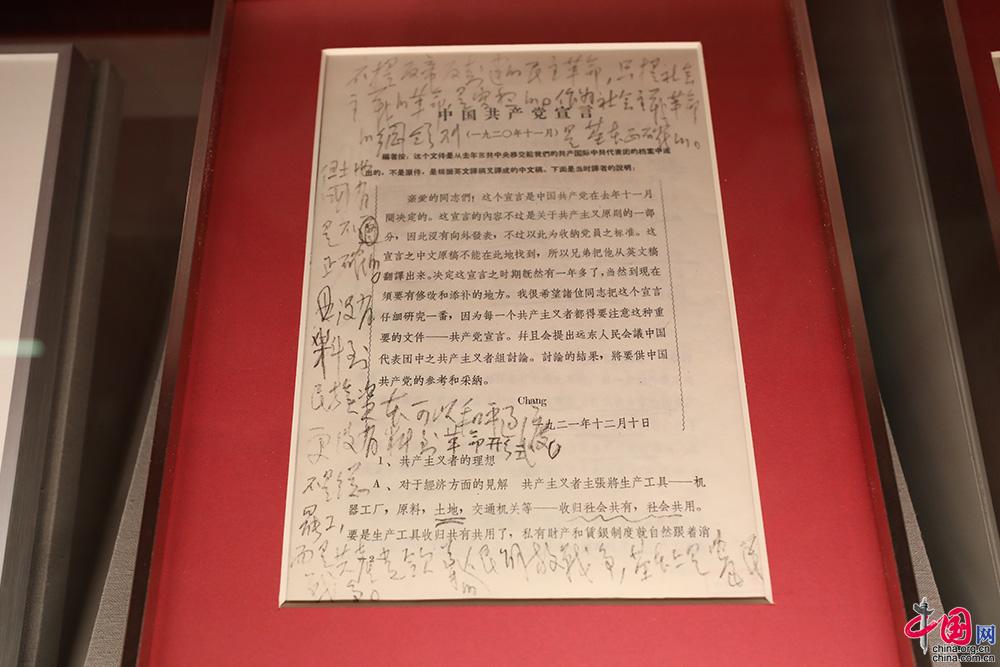 不提反帝反封建的民主革命,只提社会
主义的革命,是空想的。作为社会主义革命
的纲领则 是基本正确的。
中国共产党宣言
(一九二〇年十一月)
編者按:这个文件是从去年苏共中央移交給我們的共产国际中共代表团的档案中选
出的,不是原件,是根据英文譯稿又譯成的中文稿。下面是当时譯者的說明:
亲爱的同志們!这个宣言是中国共产党在去年十一月
間决定的。这宣言的內容不过是关于共产主义原則的一部
分,因此沒有向外發表,不过以此为收納党員之标准。这
宣言之中文原稿不能在此地找到,所以兄弟把他从英文稿
翻譯出来。决定这宣言之时期既然有一年多了,当然到現在
須要有修改和添补的地方。我很希望諸位同志把这个宣言
仔細研究一番,因为每一个共产主义者都得要注意这种重
要的文件——共产党宣言。幷且会提出远东人民会議中国
代表团中之共产主义者組討論。討論的结果,將要供中国
共产党的参考和采納。
Chang
一九二一年十二月十日
但土地
国有
是不
正确的。
且没有
料到
民族资
本可以和平过渡。
更没有
料到革命形式
不是总
罢工,
而是共产党领导的人民解放战争,基本上是农民
战争。
1、共产主义者的理想
A、对于經济方面的見解 共产主义者主張將生产工具——机
器工厂,原料,土地,交通机关等——收归社会共有,社会共用。
要是生产工具收归共有共用了,私有財产和賃銀制度就自然跟着消
中国网
china.org.cn
china.com.cn